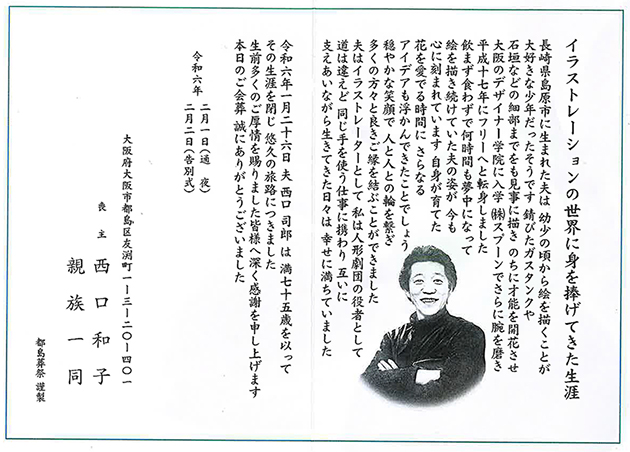 イラストレーションの世界に身を捧げてきた生涯
長崎県島原市に生まれた夫は 幼少の頃から絵を描くことが
大好きな少年だったそうです 錆びたガスタンクや
石垣などの細部までをも見事に描き のちに才能を開花させ
大阪のデザイナー学院に入学 ㈱スプーンでさらに腕を磨き
平成十七年にフリーへと転身しました
飲まず食わずで何時間も夢中になって
絵を描き続けていた夫の姿が 今も
心に刻まれています 自身が育てた
花を愛でる時間に さらなる
アイデアも浮かんできたことでしょう
穏やかな笑顔で 人と人との輪を繋ぎ
多くの方々と良きご縁を結ぶことができました
夫はイラストレーターとして 私は人形劇団の役者として
道は違えど 同じ手を使う仕事に携わり 互いに
支えあいながら生きてきた日々は 幸せに満ちていました
令和六年一月二十六日 夫 西口 司郎 は 満七十五歳を以って
その生涯を閉じ 悠久の旅路につきました
生前多くのご厚情を賜りました皆様へ深く感謝を申し上げます
本日のご会葬 誠にありがとうございました
令和六年 二月一日(通 夜)
二月二日(告別式)
大阪府大阪市都島区友渕町一ー三ー二〇ー四〇一
喪主 西口和子
親族一同
都島葬祭 謹製